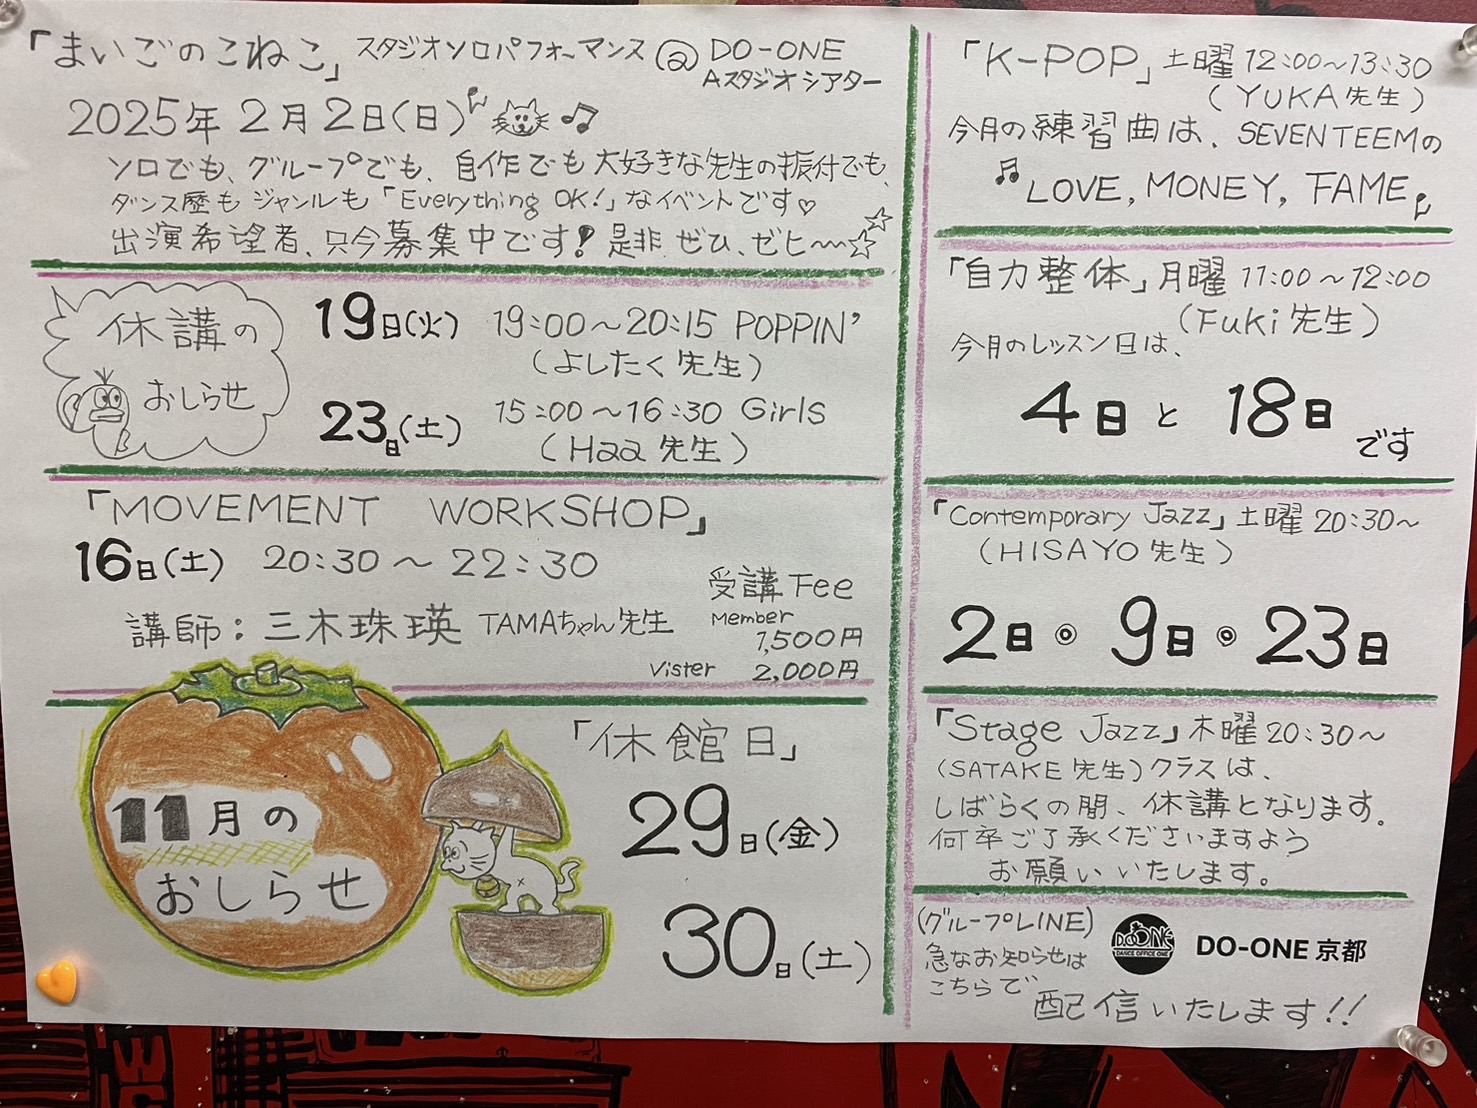 「まいごのこねこ」スタジオソロパフォーマンス@DO-ONE
Aスタジオシアター
2025年2月2日(日)
ソロでも、グループでも、自作でも大好きな先生の振付でも、
ダンス歴もジャンルも「Everything OK!」なイベントです♡
出演希望者、只今募集中です!是非ぜひ、ゼヒ〜〜☆☆
休講の
おしらせ
19日(火) 19:00〜20:15 POPPIN'
(よしたく先生)
23日(土) 15:00〜16:30 Girls
(Haa先生)
「MOVEMENT WORKSHOP」
16日(土) 20:30〜22:30
講師:三木珠瑛 TAMAちゃん先生
受講Fee
Member
1,500円
Vister 2,000円
11月の
おしらせ
「休館日」
29日(金)
30日(土)
「K-POP」土曜12:00〜13:30
(YUKA先生)
今月の練習曲は、SEVENTEEMの
♫LOVE, MONEY, FAME♪
「自力整体」月曜11:00〜12:00
(Fuki先生)
今月のレッスン日は、
4日と18日
です
「Contemporary Jazz」土曜20:30〜
(HISAYO先生)
2日◎9日◎23日
「Stage Jazz」木曜20:30〜
(SATAKE先生)クラスは、
しばらくの間、休講となります。
何卒ご了承くださいますよう
お願いいたします。
(グループLINE)
急なお知らせは
こちらで
配信いたします!!
DO-ONE
DANCE OFFICE ONE
DO-ONE 京都